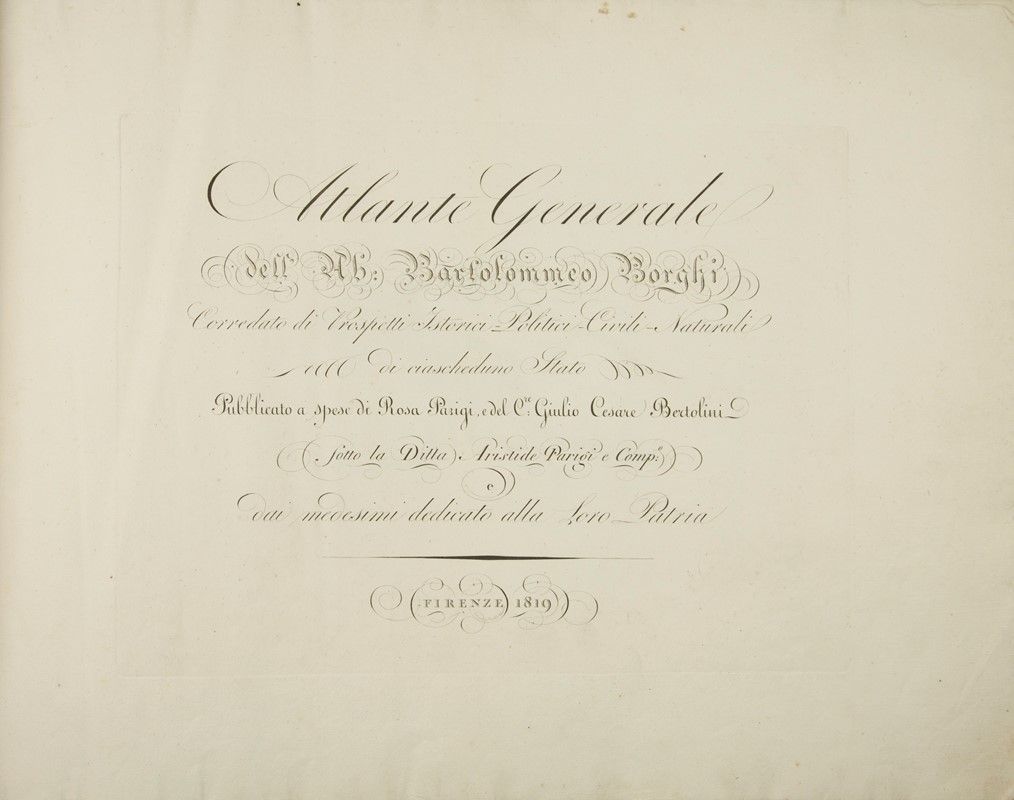 Atlante Generale
dell' Ab: Bartolommeo Borghi
Corredato di Prospetti Istorici-Politici-Civili-Naturali
di ciascheduno Stato
Pubblicato a spese di Rosa Parigi, e del C.re Giulio Cesare Bertolini
sotto la Ditta Aristide Parigi e Comp.o
e
dai medesimi dedicato alla Loro Patria
FIRENZE 1819